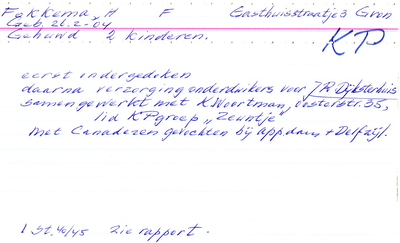 Fokkema, H F Gasthuisstraatje 3 Gron
Geb. 26.2-04
Gehuwd 2 kinderen.
KP
eerst ondergedoken
daarna verzorging onderduikers voor J R Dijksterhuis
samengewerkt met K. Woortman, Oosterstr. 35,
lid KPgroep „Zeuntje"
met Canadezen gevochten bij App.dam + Delfzijl.
1 St. 40/45 Zie rapport.